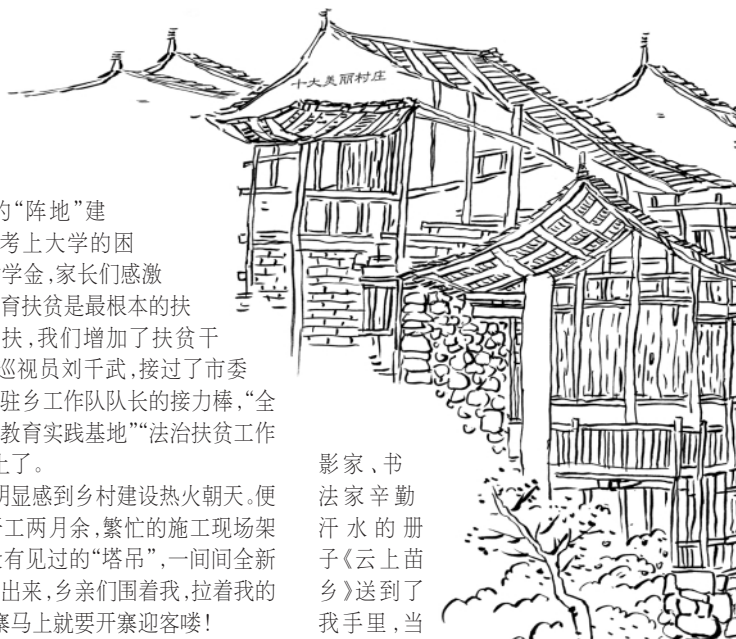 十大美丽村庄
的“阵地”建
考上大学的困
学金，家长们感激
育扶贫是最根本的扶
扶，我们增加了扶贫干
巡视员刘千武，接过了市委
驻乡工作队队长的接力棒，“全
教育实践基地”“法治扶贫工作
上了。
明显感到乡村建设热火朝天。便
工两月余，繁忙的施工现场架
有见过的“塔吊”，一间间全新
出来，乡亲们围着我，拉着我的
寨马上就要开寨迎客喽！
影家、书
法家辛勤
汗水的册
子《云上苗
乡》送到了
我手里，当